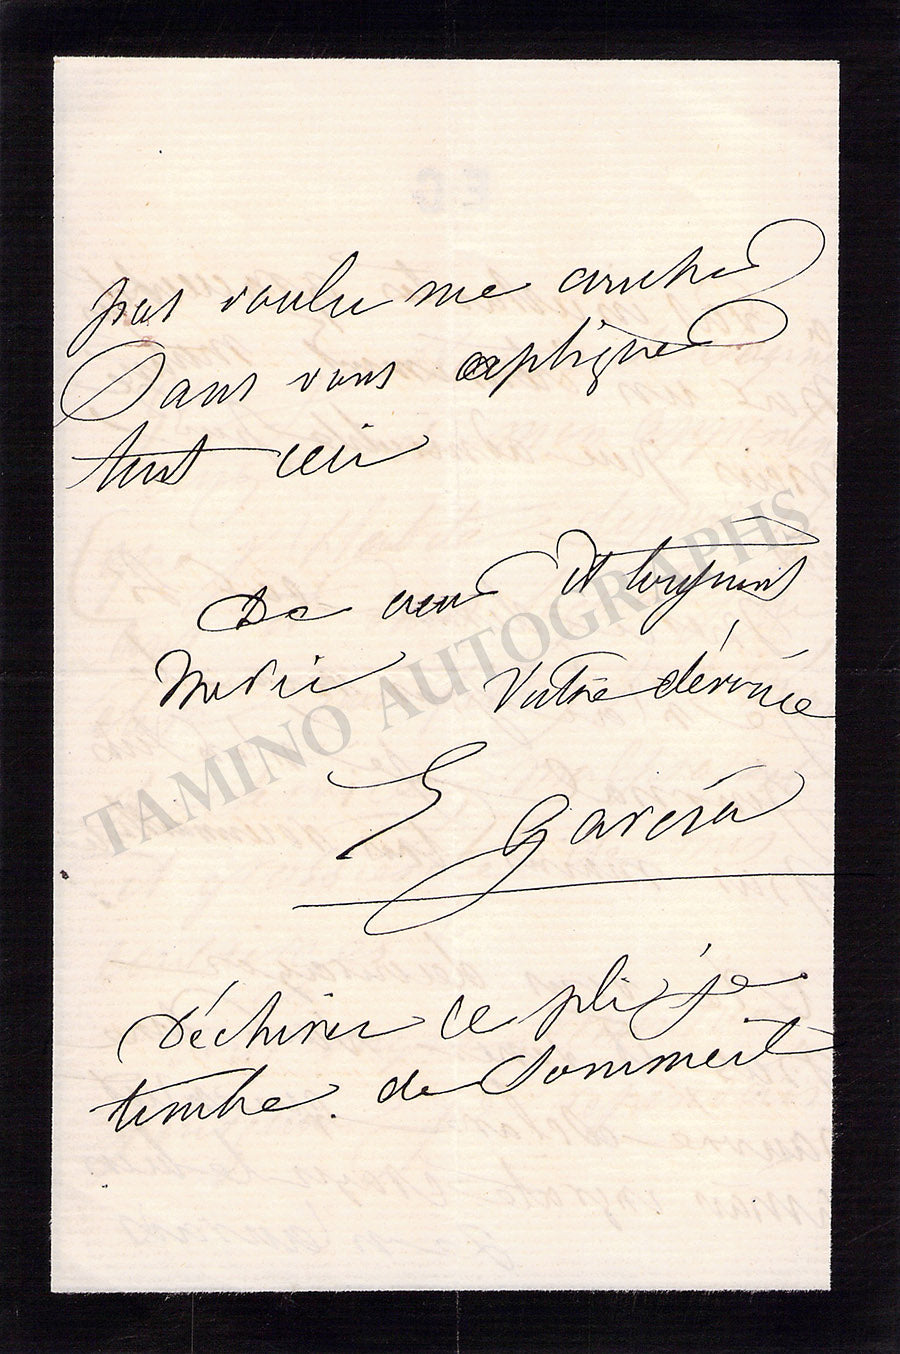 pas voulu me coucher
Sans vous expliquer
tout ceci
De cœur et toujours
Merci Votre dévouée
E Garcia
Déchirer ce pli je
tombe de Sommeil
TAMINO AUTOGRAPHS